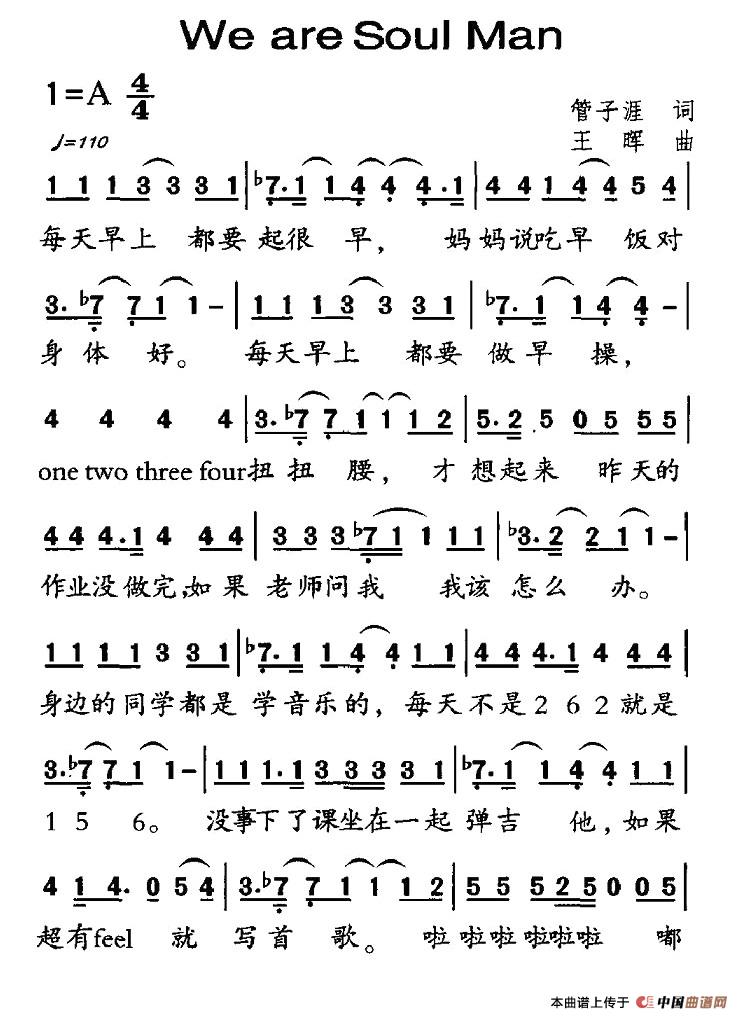 We are Soul Man
1=A 4/4
管子涯 词
♩=110
王 晖 曲
1 1 1 3 3 3 3 1 | ♭7. 1 1 4 4 4 . 1 | 4 4 1 4 4 5 4 |
每天早上 都要起很 早， 妈妈说吃早 饭对
3. ♭7 7 1 1 - | 1 1 1 3 3 3 1 | ♭7. 1 1 4 4 - |
身体 好。 每天早上 都要 做早 操，
4 4 4 4 | 3. ♭7 7 1 1 1 2 | 5. 2 5 0 5 5 5 |
one two three four扭扭 腰， 才想起来 昨天的
4 4 4. 1 4 4 4 | 3 3 3 ♭7 1 1 1 1 | ♭3. 2 2 1 1 - |
作业没做完,如果 老师问我 我该 怎么 办。
1 1 1 1 3 3 3 1 | ♭7. 1 1 4 4 1 1 | 4 4 4. 1 4 4 4 |
身边的同学都是 学音乐的，每天不是262就是
3. ♭7 7 1 1 - | 1 1 1. 1 3 3 3 3 1 | ♭7. 1 1 4 4 1 1 |
1 5 6。 没事下了课坐在一起 弹吉 他，如果
4 1 4. 0 5 4 | 3. ♭7 7 1 1 1 2 | 5 5 5 2 5 0 0 5 |
超有feel 就 写首 歌。 啦 啦啦 啦啦啦 嘟
本曲谱上传于 中国曲谱网